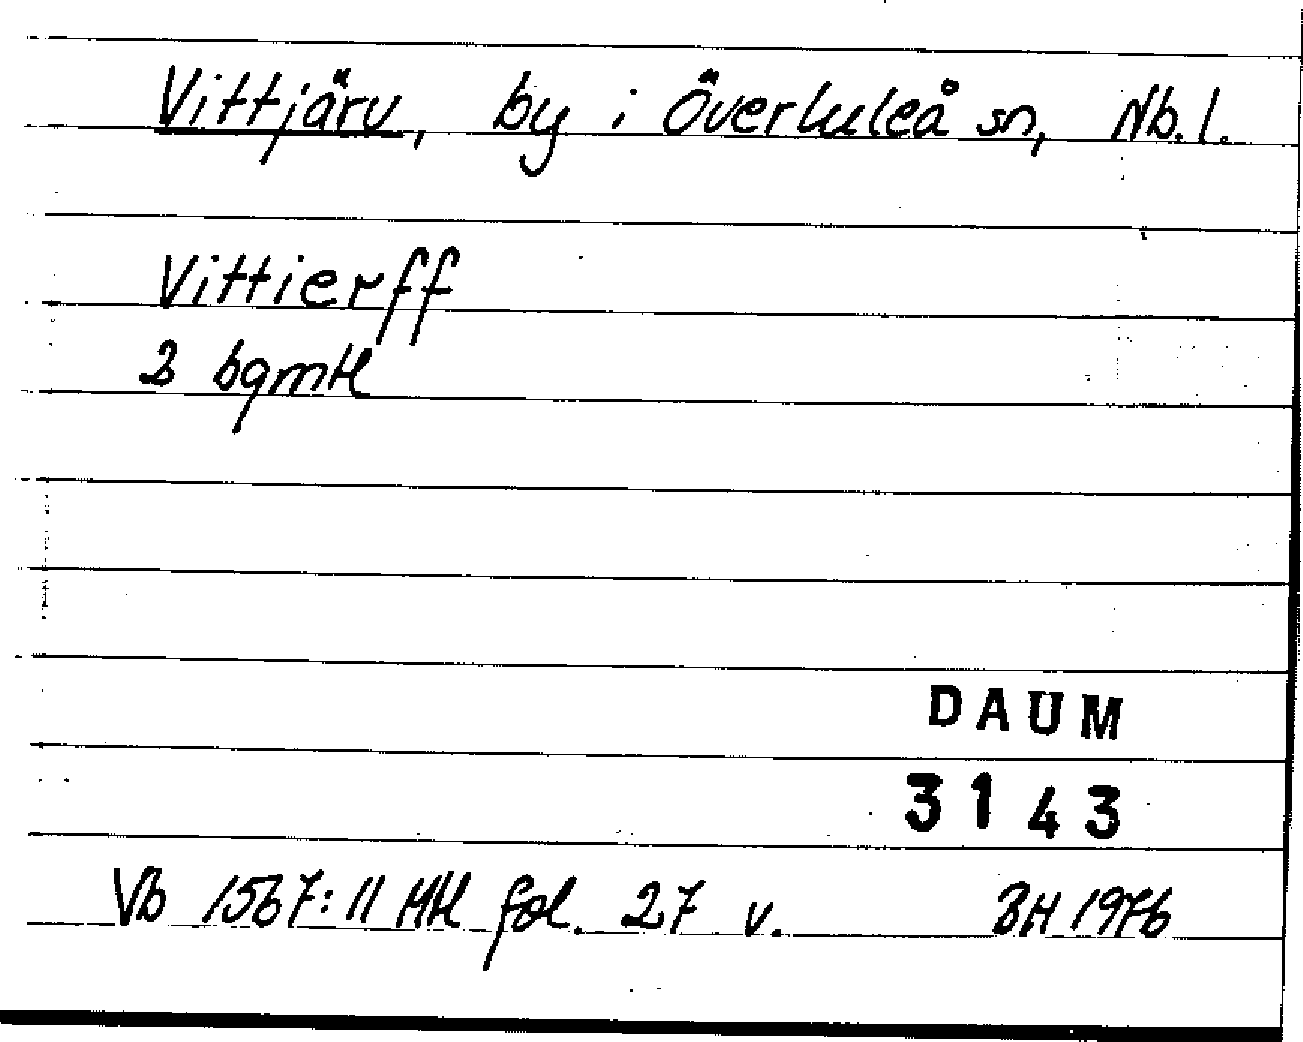 Vittjärv, by i Överluleå sn, Nb. l.
Vittierff
2 bgmtl
DAUM
3143
Vb 1567:11 Mtl fol. 27 v. BH 1976